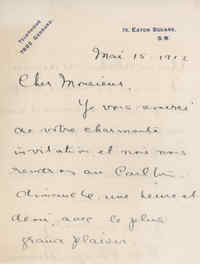 TELEPHONE
7803 GERRARD.
75, EATON SQUARE,
S.W.
Mai 15 1912
Cher Monsieur,
Je vous
de votre charmante
invitation et nous nous
rendrons au Carlton
dimanche, une heure et
demi, avec le plus
grand plaisir